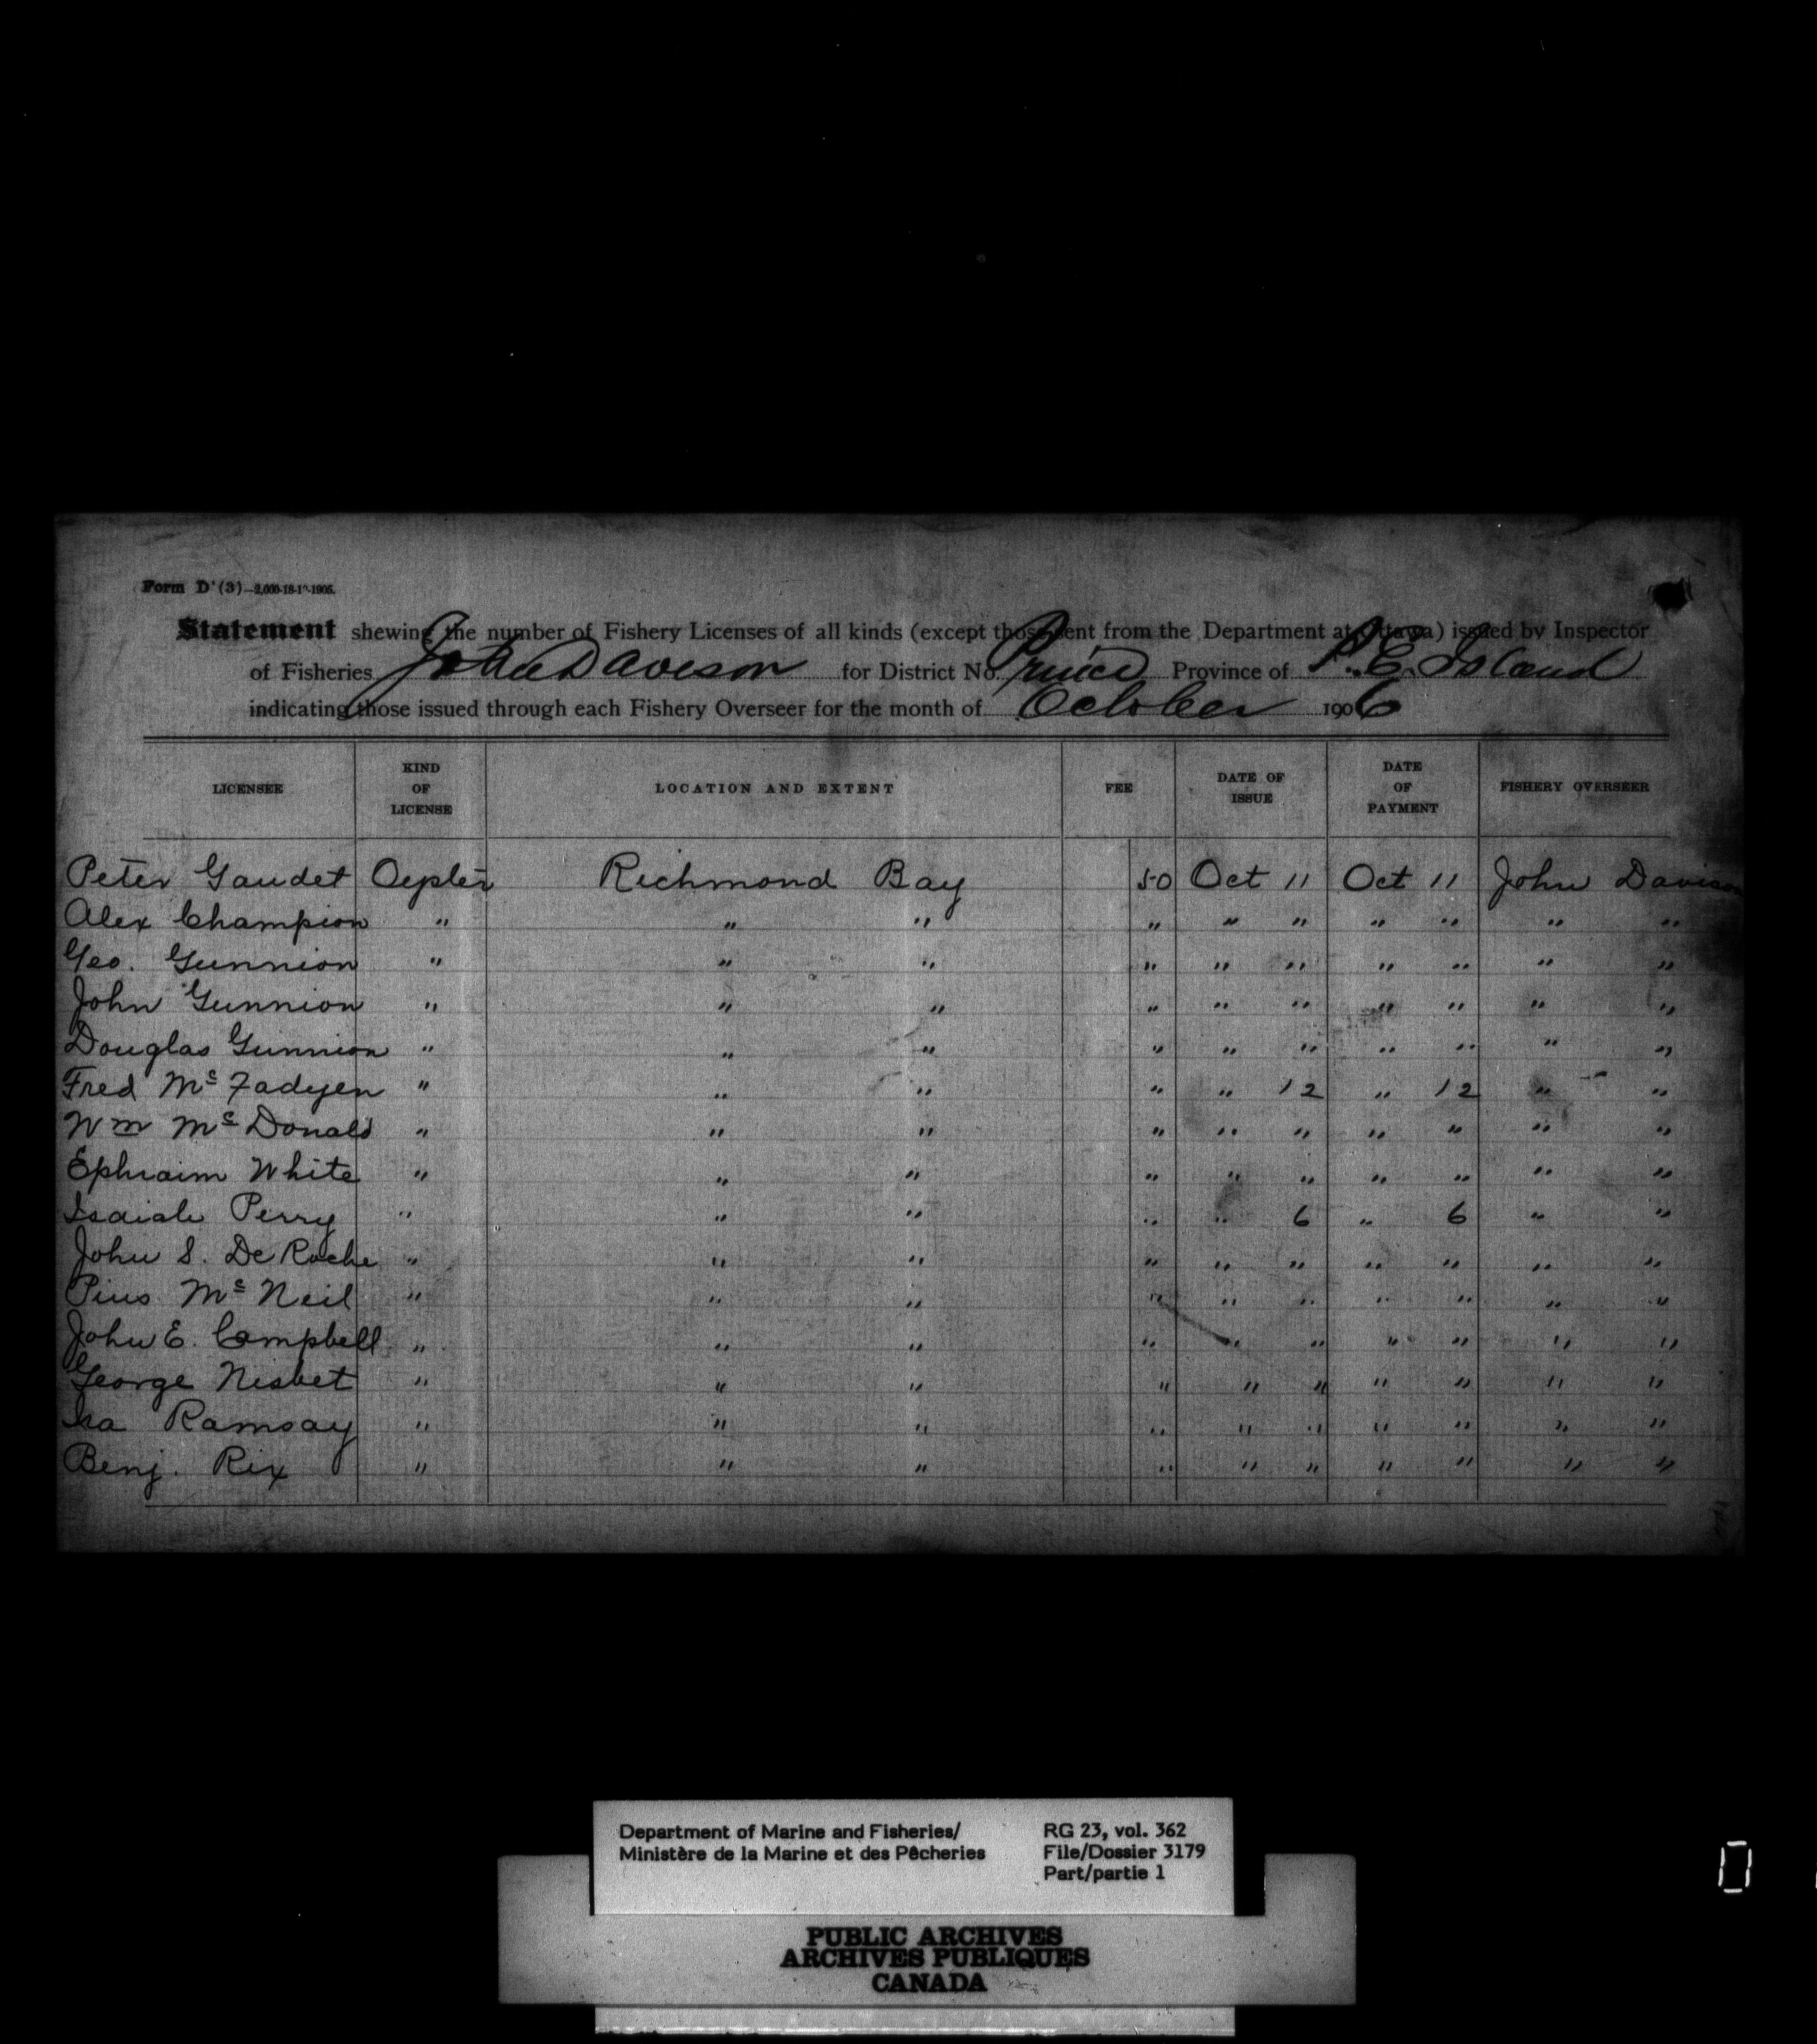 Form D'(3)—2,000-18-1 -1905.
Statement shewing the number of Fishery Licenses of all kinds (except those sent from the Department at Ottawa) issued by Inspector
of Fisheries John Davison for District No. Prince Province of P. E. Island
indicating those issued through each Fishery Overseer for the month of October 1906
LICENSEE KIND OF LICENSE LOCATION AND EXTENT FEE DATE OF ISSUE DATE OF PAYMENT FISHERY OVERSEER
Peter Gaudet Oyster Richmond Bay 50 Oct 11 Oct 11 John Davison
Alex Champion " " " " " " " " " "
Geo. Gunnion " " " " " " " " " "
John Gunnion " " " " " " " " " "
Douglas Gunnion " " " " " " " " " "
Fred Mc Fadyen " " " " " 12 " 12 " "
Wm Mc Donald " " " " " " " " " "
Ephraim White " " " " " " " " " "
Isaiah Perry " " " " " 6 " 6 " "
John S. De Roche " " " " " " " " " "
Pius Mc Neil " " " " " " " " " "
John E. Campbell " " " " " " " " " "
George Nisbet " " " " " " " " " "
Ira Ramsay " " " " " " " " " "
Benj. Rix " " " " " " " " " "
Department of Marine and Fisheries/ RG 23, vol. 362
Ministère de la Marine et des Pêcheries File/Dossier 3179
Part/partie 1
PUBLIC ARCHIVES
ARCHIVES PUBLIQUES
CANADA